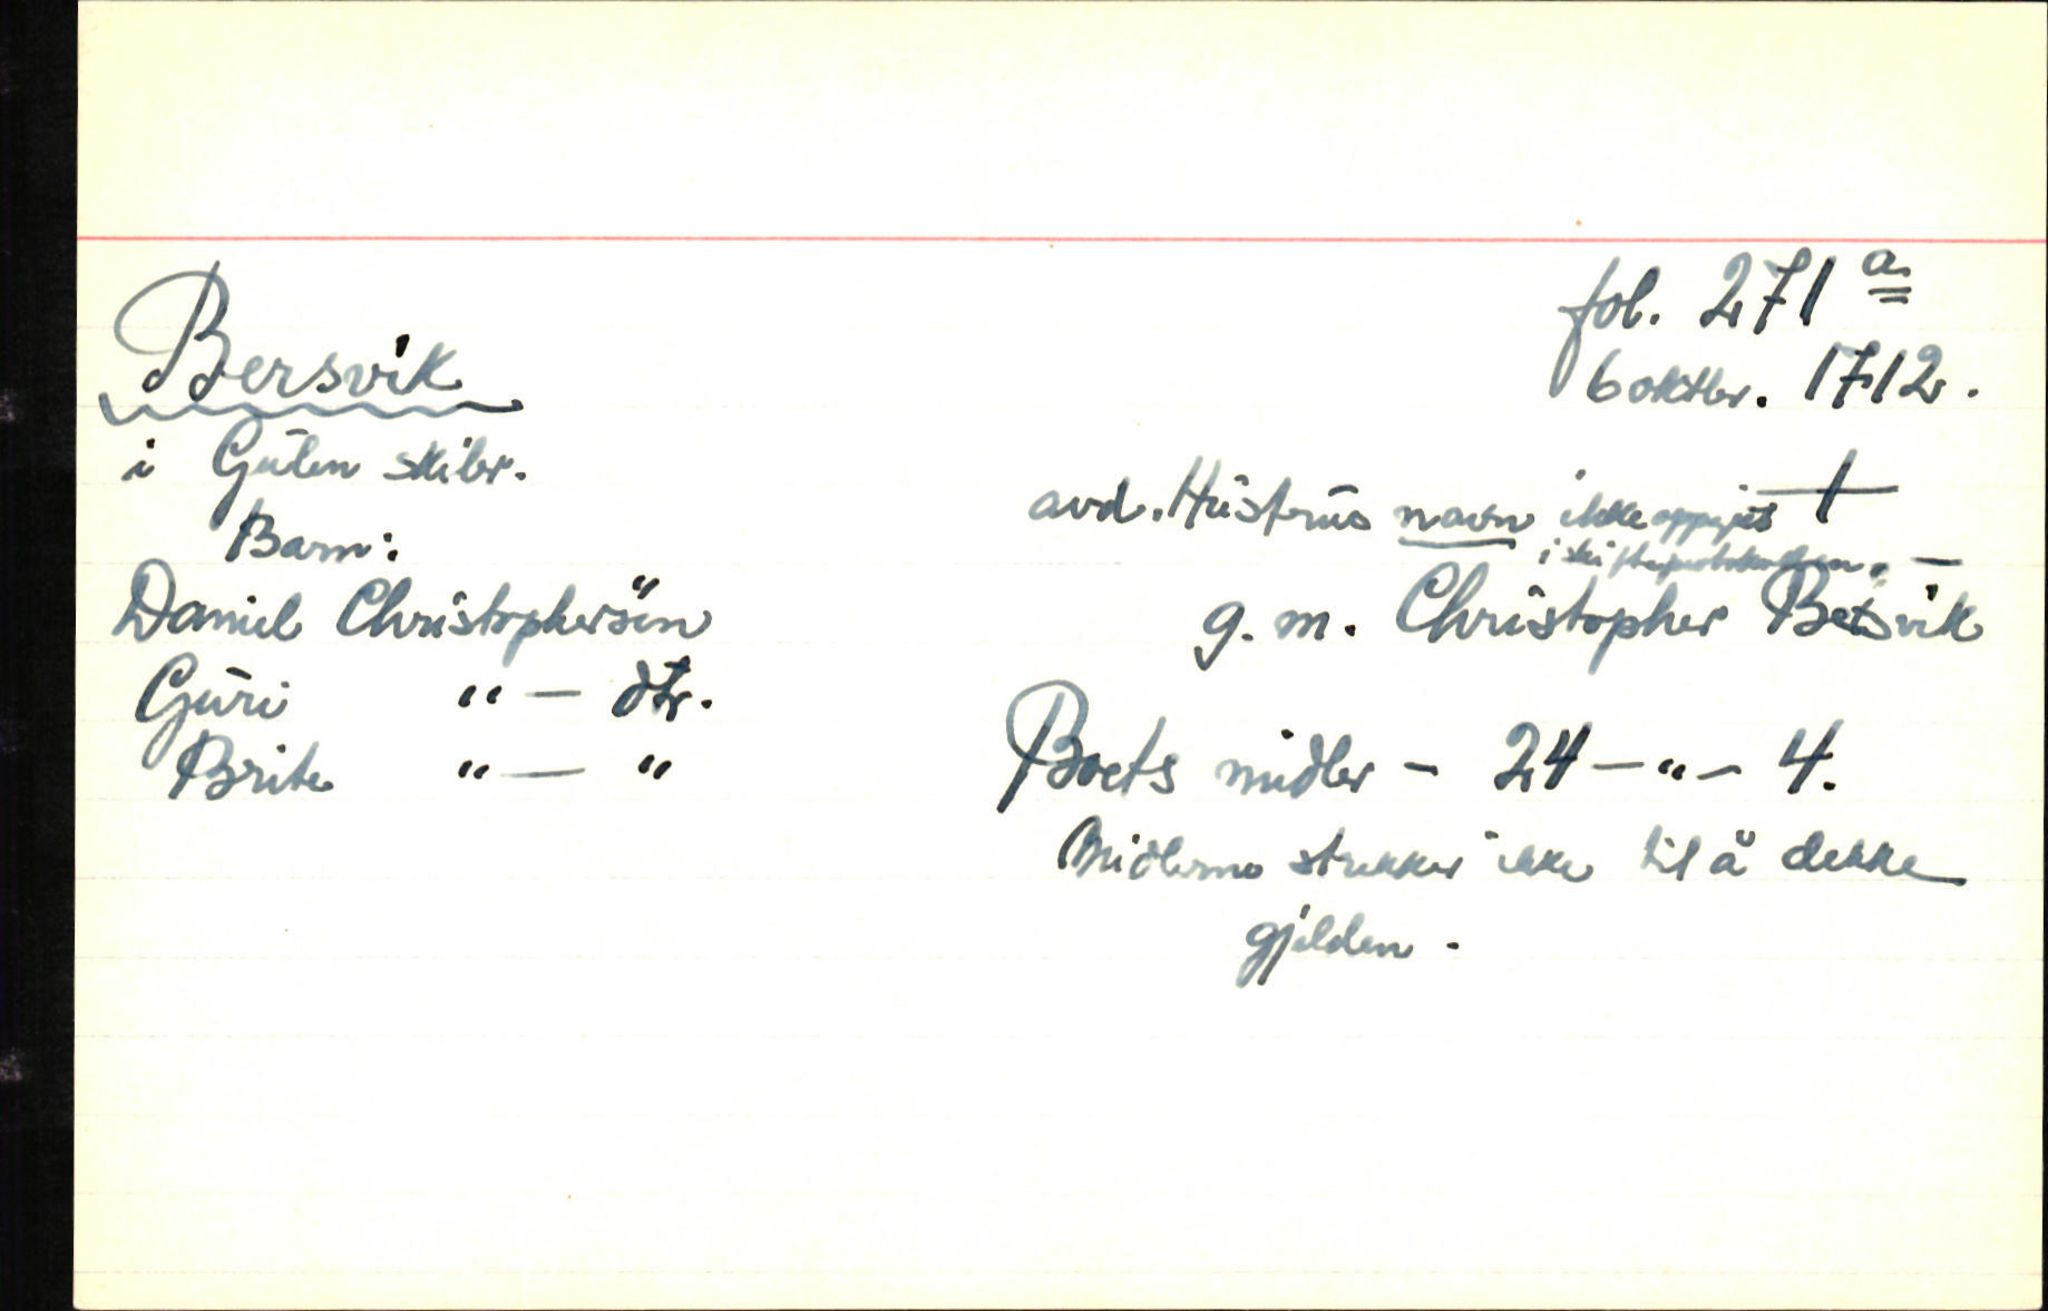 fol. 271 a
6 oktbr. 1712.
Bersvik
i Gulen skibr.
Barn:
Daniel Christophersøn
Guri " — dtr.
Brite " — "
avd. Hustrus navn ikke oppgit †
i skifteprotokollen. —
g. m. Christopher Bersvik
Boets midler - 24 - " - 4.
Midlerne strekker ikke til å dekke
gjelden -